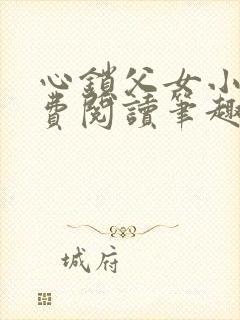 心鎖父女小
費閱讀筆趣
城府